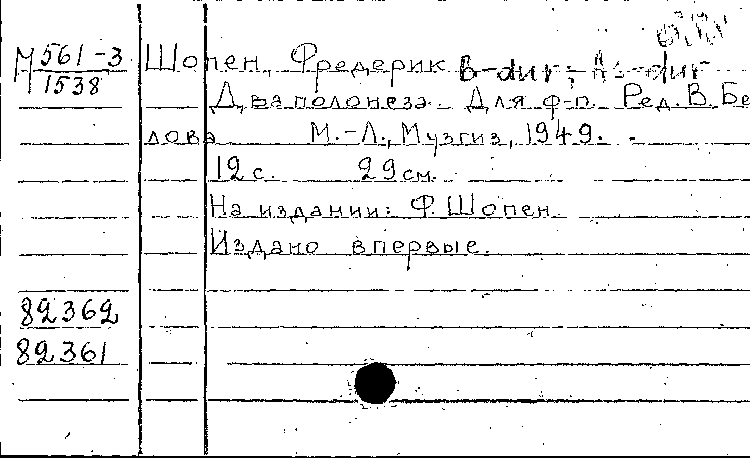 М 561-3 Шопен, Фредерик B-dur; As-dur
1538
Два полонеза. Для ф-п. Ред. В. Бе
лова М.-Л., Музгиз, 1949.
12 с. 29 см.
На издании: Ф. Шопен.
Издано впервые.
82362
82361